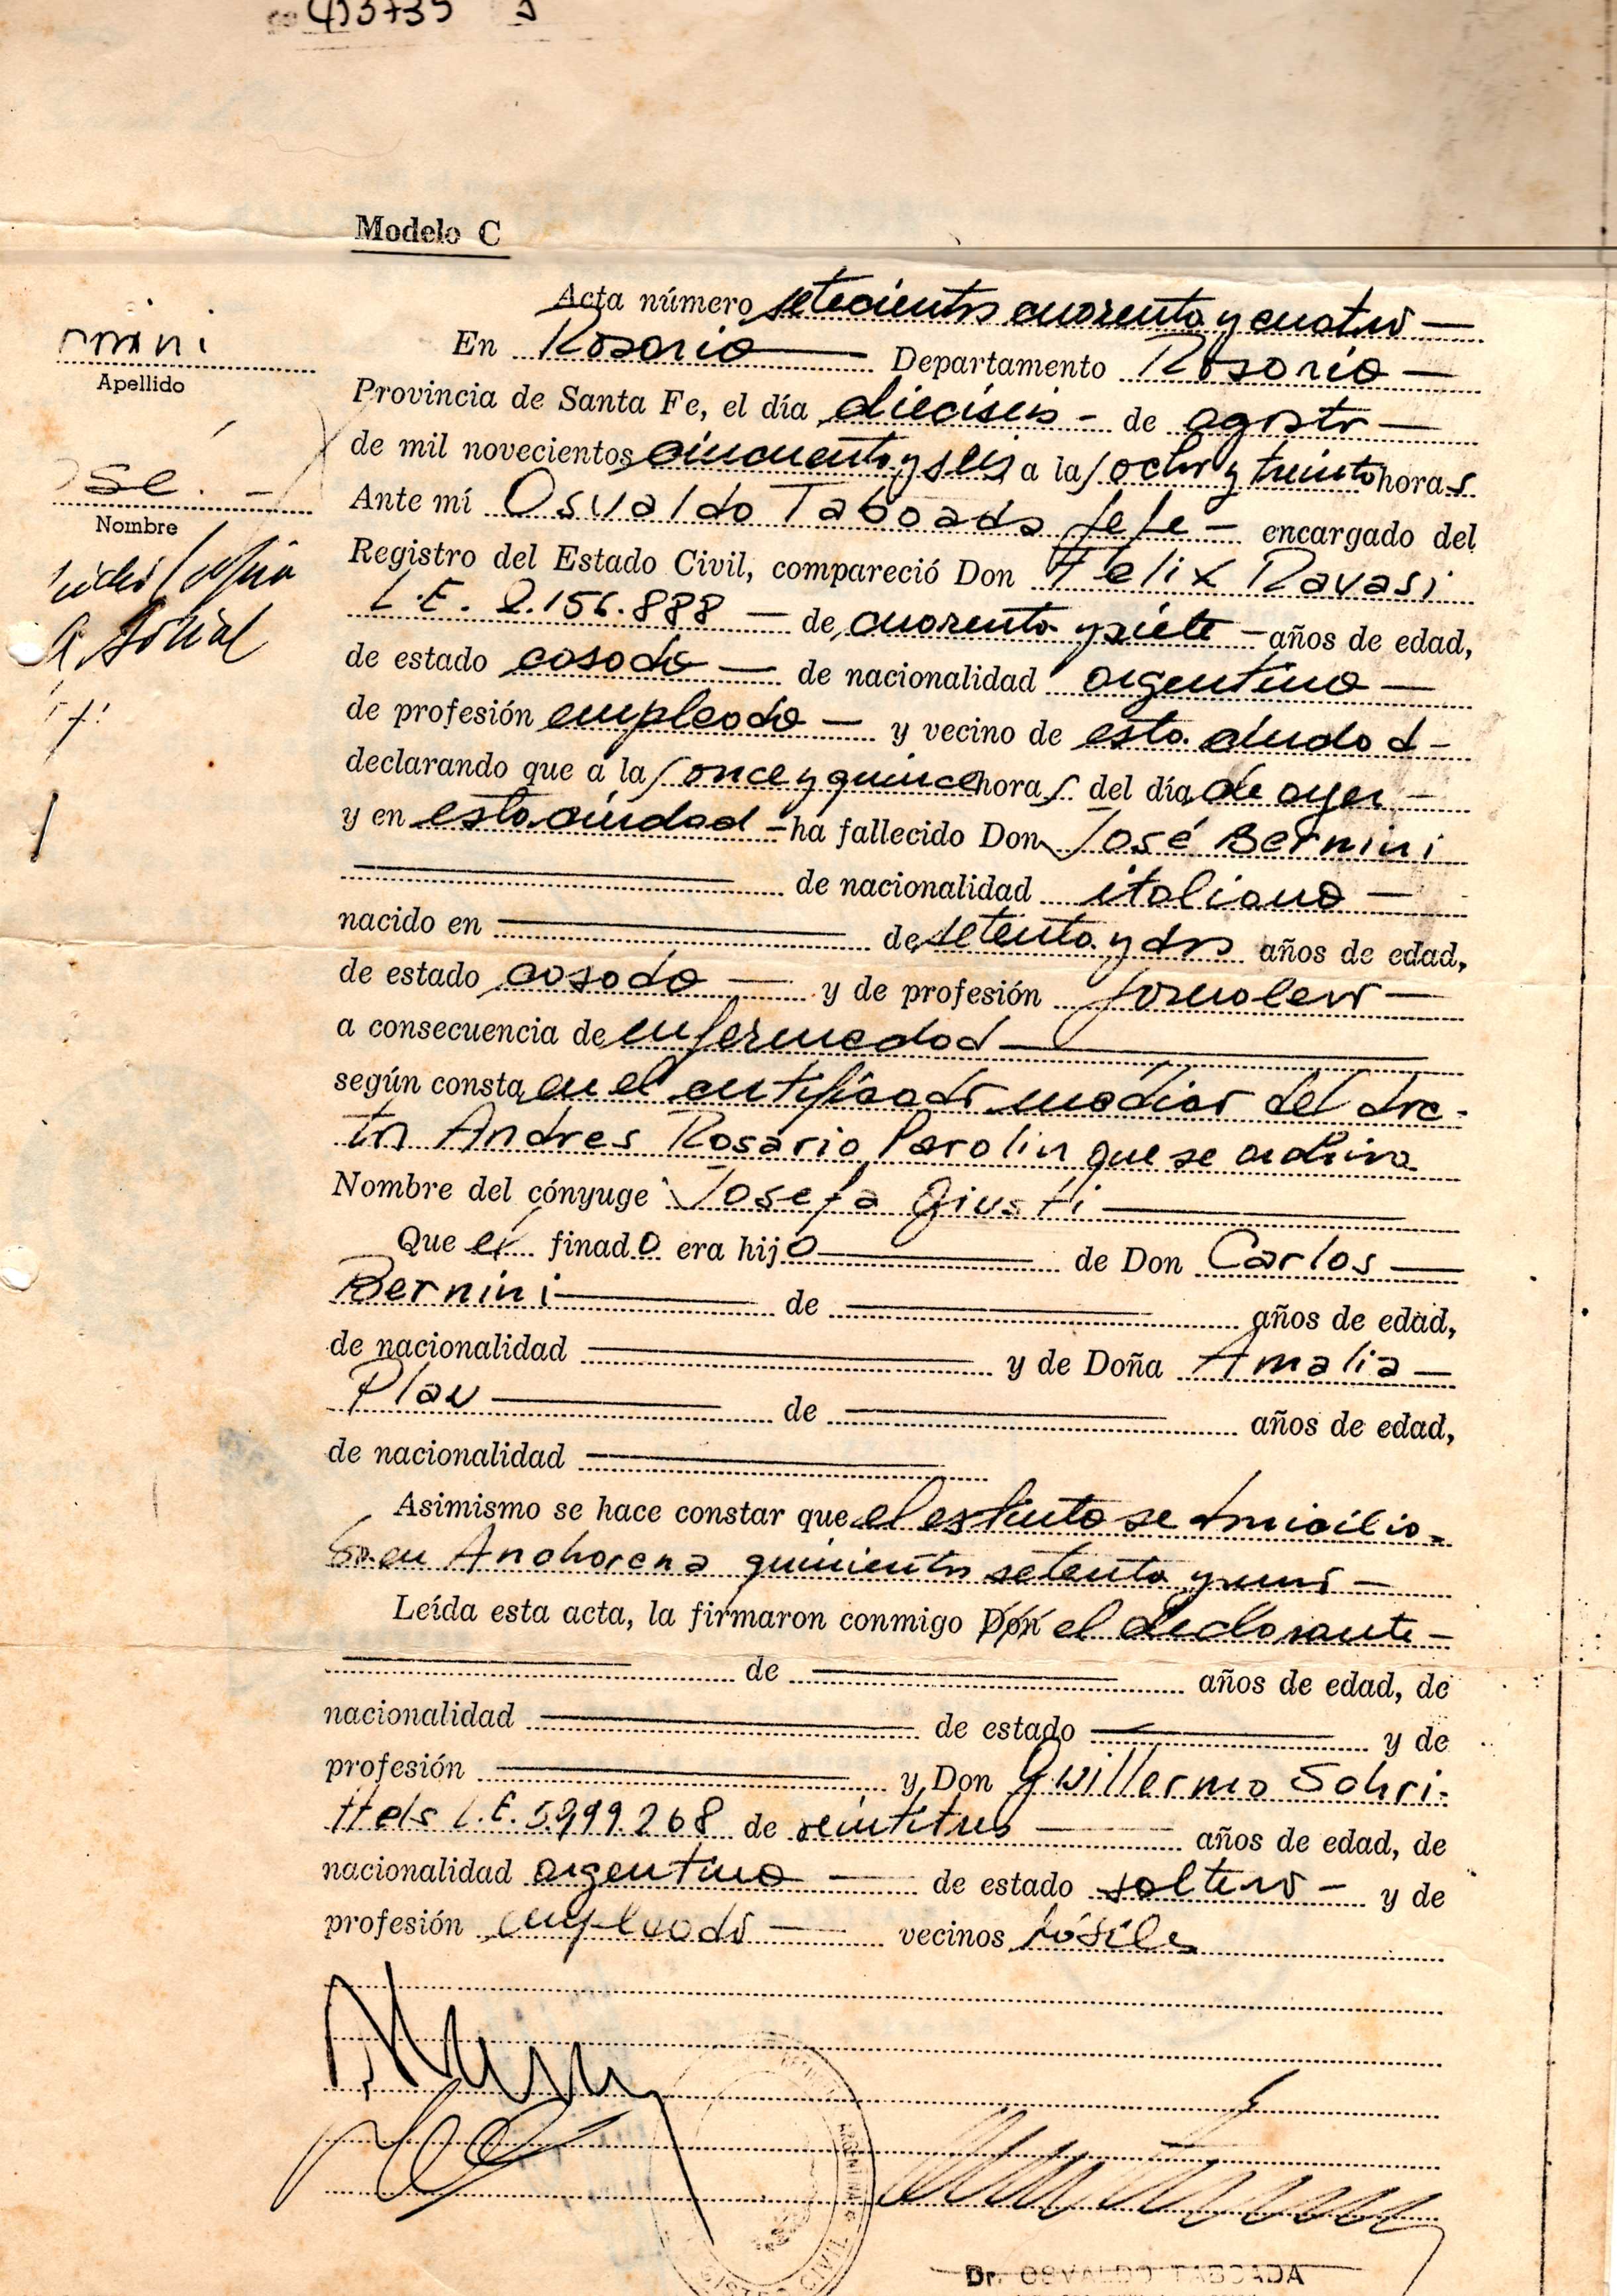 Modelo C
Acta número setecientos cuarenta y cuatro
mini
Apellido
En Rosario Departamento Rosario
Provincia de Santa Fe, el día dieciseis de agosto
de mil novecientos cincuenta y seis a las ocho y treinta horas
ose.
Nombre
Ante mí Osvaldo Taboada Jefe encargado del
Registro del Estado Civil, compareció Don Felix Ravasi
L.E. 2.156.888 de cuarenta y siete años de edad,
de estado casado de nacionalidad argentino
de profesión empleado y vecino de esta ciudad
declarando que a las once y quince horas del día de ayer
y en esta ciudad ha fallecido Don José Bernini
de nacionalidad italiano
nacido en de setenta y dos años de edad,
de estado casado y de profesión jornalero
a consecuencia de enfermedad
según consta en el certificado medico del doc-
tor Andres Rosario Parolin que se archiva
Nombre del cónyuge Josefa Giusti
Que el finado era hijo de Don Carlos
Bernini de años de edad,
de nacionalidad y de Doña Amalia
de años de edad,
de nacionalidad
Asimismo se hace constar que el extinto se domicilia-
ba en Anchorena quinientos setenta y uno
Leída esta acta, la firmaron conmigo Don el declarante
de años de edad, de
nacionalidad de estado y de
profesión y Don Guillermo Schri-
L.E. 5.999.268 de veintitres años de edad, de
nacionalidad argentino de estado soltero y de
profesión empleado vecinos
ARGENTINA
REGISTRO CIVIL
Dr. OSVALDO TABOADA